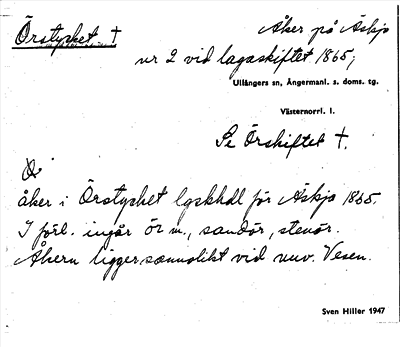 Örstycket † Åker på Äskja
nr 2 vid lagaskiftet 1865;
Ullångers sn, Ångermanl. s. doms. tg.
Västernorrl. l.
Se Örskiftet †.
åker i Örstycket lgskhdl för Äskja 1865.
I förl. ingår ör m., sandör, stenör.
Åkern ligger sannolikt vid nuv. Vesen.
Sven Hiller 1947